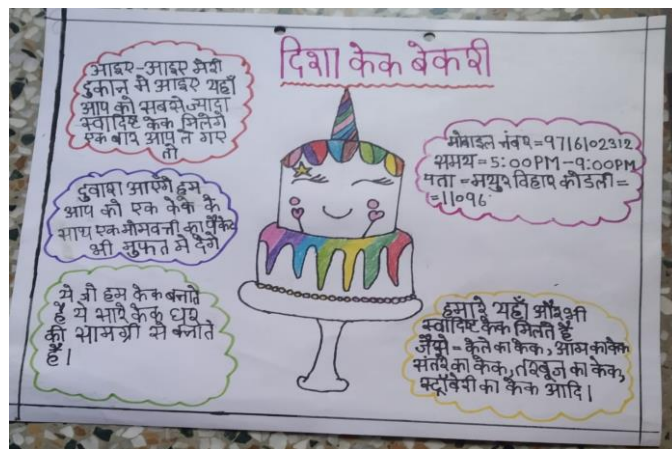 दिशा केक बेकरी
आइए-आइए मेरी
दुकान में आइए यहाँ
आप को सबसे ज्यादा
स्वादिष्ट केक मिलेंगे
एक बार आप ले गए
तो
दुवारा आएंगे हम
आप को एक केक के
साथ एक मोमबत्ती का पैकेट
भी मुफत में देंगे
ये जो हम केक बनाते
हैं ये सारे केक घर
की सामग्री से बनाते
हैं।
मोबाइल नंबर =9716102312
समय = 5:00PM-9:00PM
पता = मयुर विहार कोंडली =
=11096
हमारे यहाँ और भी
स्वादिष्ट केक मिलते हैं
जैसे - केले का केक, आम का केक
संतरे का केक, तरबूज का केक,
स्ट्रॉबेरी का केक आदि।